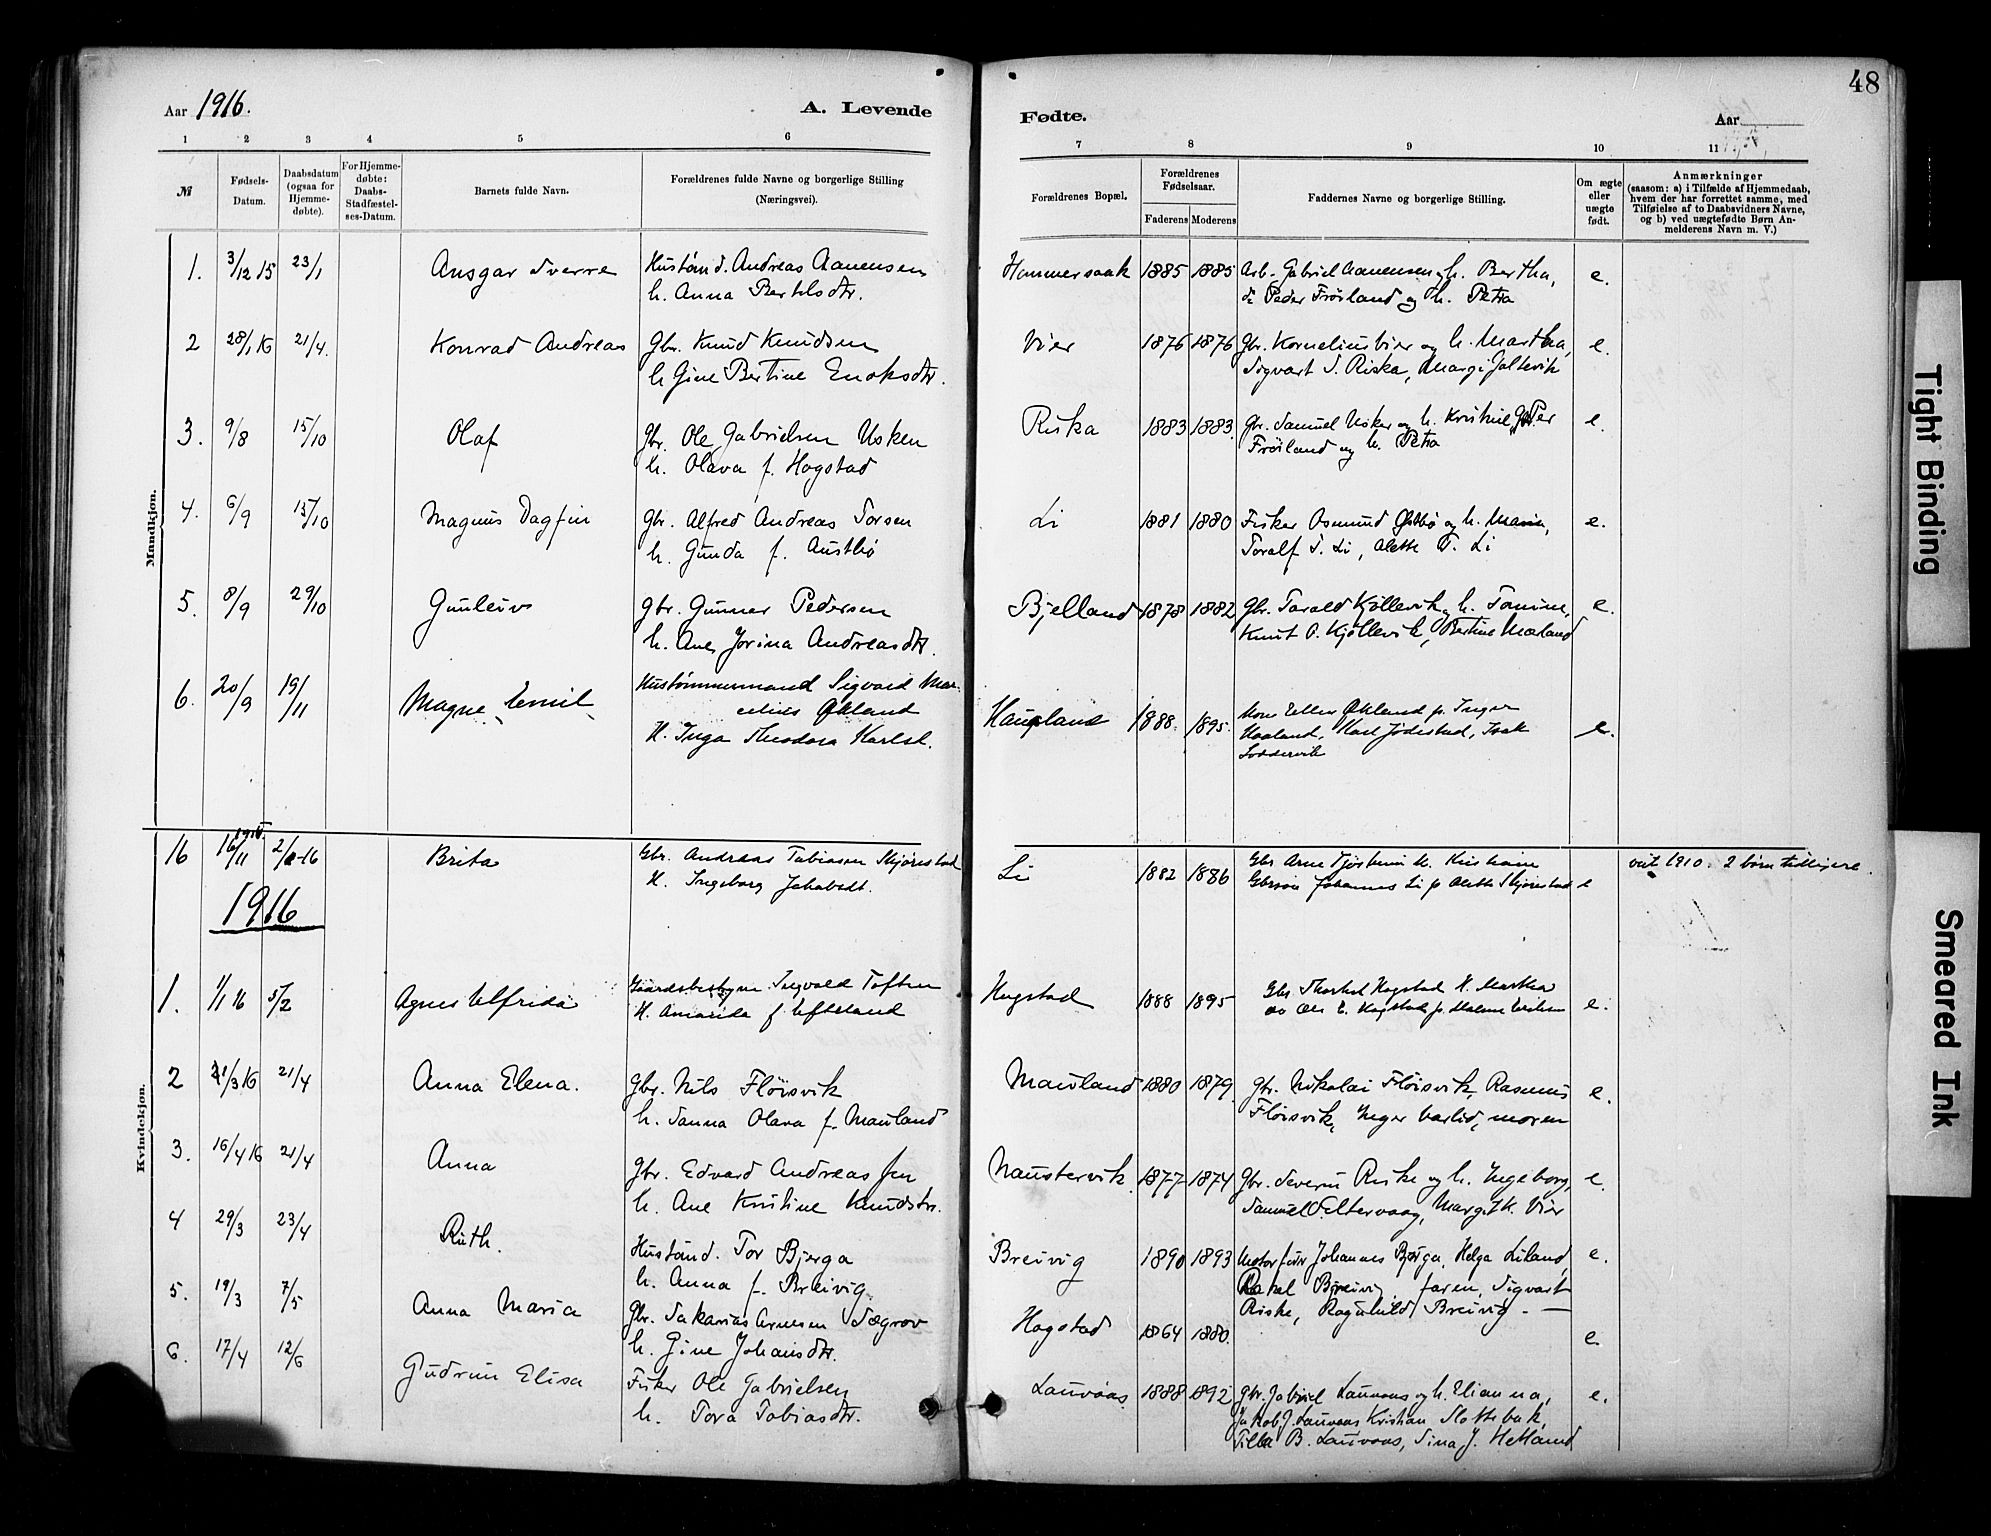 48
Aar 1916. A. Levende Fødte. Aar
1 2 3 4 5 6 7 8 9 10 11
№ Fødsels-Datum. Daabsdatum (ogsaa for Hjemmedøbte). For Hjemmedøbte: Daabs-Stadfæstelses-Datum. Barnets fulde Navn. Forældrenes fulde Navne og borgerlige Stilling (Næringsvei). Forældrenes Bopæl. Forældrenes Fødselsaar. Faderens Moderens Faddernes Navne og borgerlige Stilling. Om ægte eller uægte født. Anmærkninger (saasom: a) i Tilfælde af Hjemmedaab, hvem der har forrettet samme, med Tilføielse af to Daabsvidners Navne, og b) ved uægtefødte Børn Anmelderens Navn m. V.)
Mandkjøn.
1. 3/12 15 23/1 Ansgar Sverre Hustømd. Andreas Aanensen Hommersaak 1885 1885 Arb. Gabriel Aanensen og h. Bertha, e.
h. Anna Bertelsdtr. Peder Frøiland og h. Petra
2 28/1 16 21/4. Konrad Andreas Gbr. Knud Knudsen Vier 1876 1876 Gbr. Kornelius Vier og h. Martha, e.
h Gine Bertine Enoksdtr. Sigvart S. Riska,
3. 9/8 15/10 Olaf Gbr. Ole Gabrielsen Usken Riska 1883 1883. Gbr. Samuel Usken og h. Kristine, e.
h. Olava f. Hogstad Frøiland og h. Petra
4. 6/9 15/10 Magnus Dagfin Gbr. Alfred Andreas Torsen Li 1881 1880 Fisker Osmund Østbø og h. Maria, e.
h. Gunda f. Austbø Toralf T. Li, Alette T. Li
5. 8/9 29/10 Gunleiv Gbr. Gunner Pedersen Bjelland 1878 1882 Gbr. Tarald Kjøllevik og h. Tomine, e.
h. Ane Jorina Andreasdtr. Knut O. Kjøllevik, Bertine Mæland
6. 20/9 19/11 Magne Emil Hustømmermand Sigvald Mar- Haupland 1888. 1895. Kone Ellen Økland p. Inger e.
celius Økland Haaland, Karl Jødestad, Isak
H. Inga Theodora Karlsd.
Kvindekjøn.
16 16/11 1915. 2/1-16 Brita Gbr. Andreas Tobiassen Skjørestad Li 1882 1886 Gbr Arne Tjøstheim H. Kristiane e viet 1910. 2 børn tidligere.
H. Ingeborg Jakobsdt. Johannes Li p Alette Skjørestad
1916
1. 1/1 16 5/2 Agnes Alfrida Gaardsbestyrer Ingvald Toften Hogstad 1888 1895 Gbr Thorkel Hogstad H. Martha e.
H. Amanda f Efteland Ole E. Hogstad p. Malene
2 21/3 16 21/4 Anna Elena. Gbr. Nils Fløisvik Mauland 1880 1879. Gbr. Nikolai Fløisvik, Rasmus e.
h. Sanna Olava f. Mauland Fløisvik, Inger Varlid, moren
3. 16/4 16 21/4 Anna Gbr. Edvard Andreas Jen Naustervik. 1877 1874 Gbr. Severin Riske og h. Ingeborg, e.
h. Ane Kristine Knudsdtr. Samuel Eltervaag, Margit K. Vier
4 29/3 23/4 Ruth. Hustømd. Tor Bjerga Breivig 1890 1893 Johannes Bjerga, Helga Liland, e.
h. Anna f. Breivig. Rakel Breivig, faren, Sigvart
5. 19/3 7/5 Anna Maria Gbr. Sakarias Arnesen Sægrov Hogstad 1864 1880. Riske, Ragnhild Breivig. — e.
h. Gine Johansdtr.
6. 17/4 12/6 Gudrun Elisa Fisker Ole Gabrielsen Lauvaas 1888 1892 Gbr. Gabriel Lauvaas og h. Elianna, e.
h. Tora Tobiasdtr. Jakob J. Lauvaas Kristian Slottebak,
Tilla B. Lauvaas, Sina J. Hetland
Tight Binding
Smeared Ink